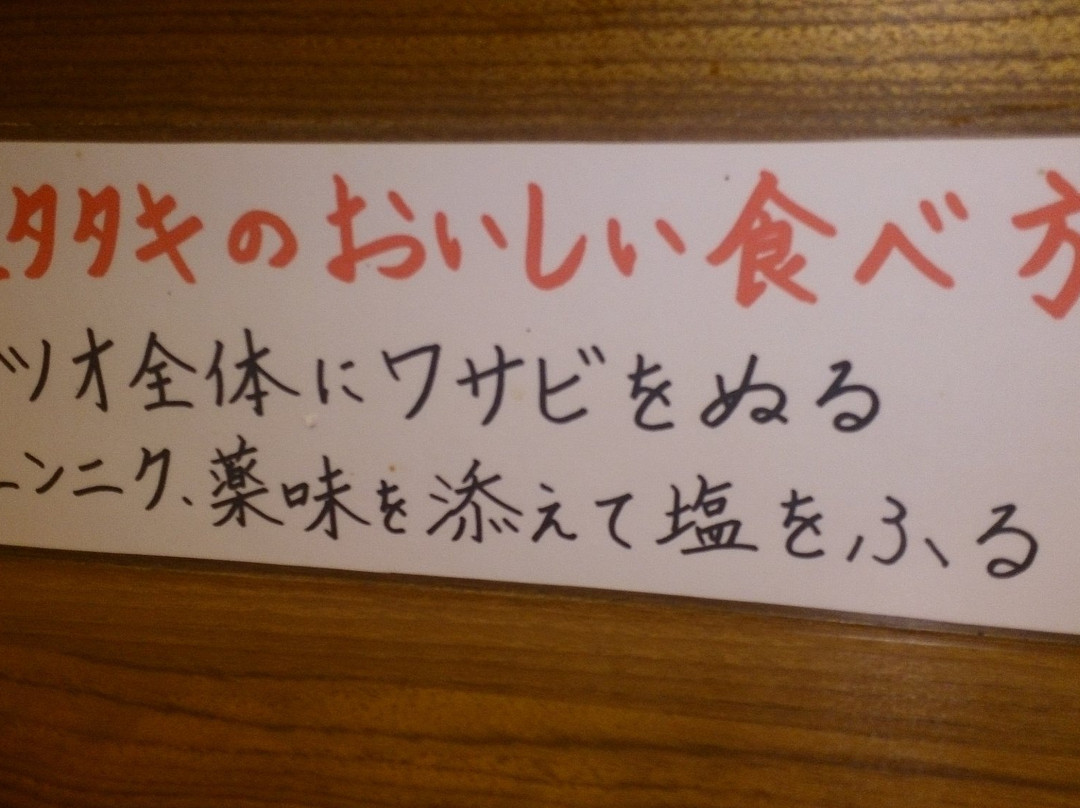 タタキのおいしい食べ方
ツオ全体にワサビをぬる
ンニク、薬味を添えて塩をふる